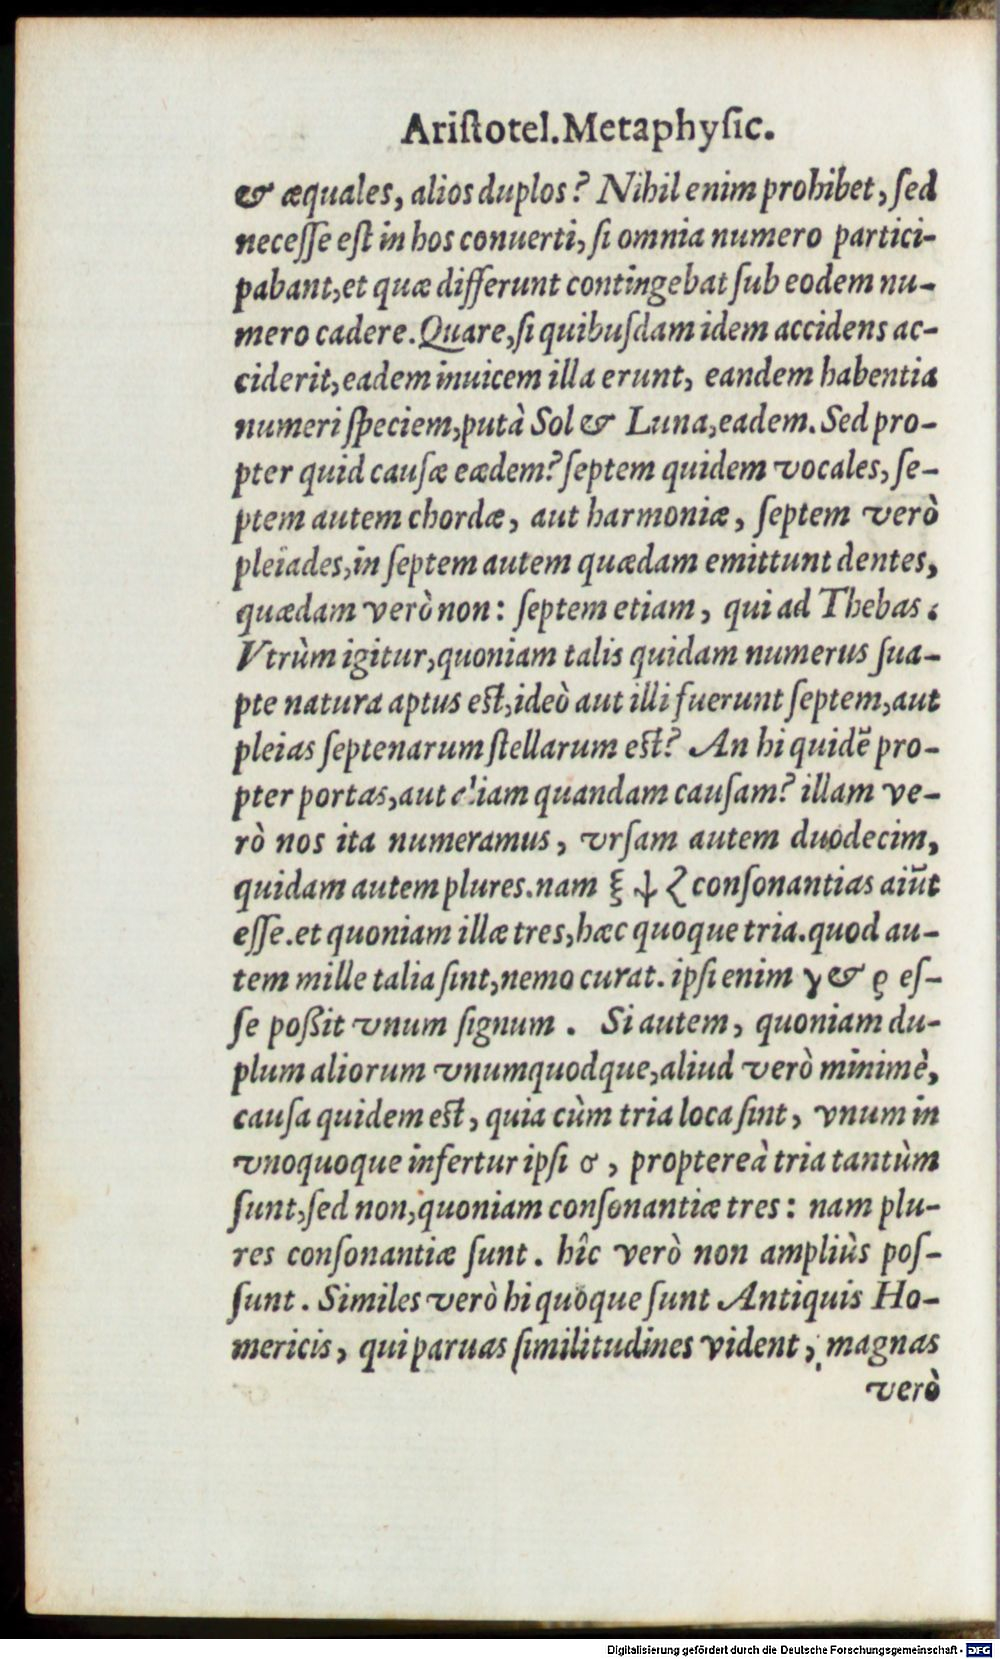 Ariſtotel. Metaphyſic.
& æquales, alios duplos? Nihil enim prohibet, ſed
neceſſe eſt in hos conuerti, ſi omnia numero partici-
pabant, et quæ differunt contingebat ſub eodem nu-
mero cadere. Quare, ſi quibuſdam idem accidens ac-
ciderit, eadem inuicem illa erunt, eandem habentia
numeri ſpeciem, putà Sol & Luna, eadem. Sed pro-
pter quid cauſæ eædem? ſeptem quidem vocales, ſe-
ptem autem chordæ, aut harmoniæ, ſeptem verò
pleiades, in ſeptem autem quædam emittunt dentes,
quædam verò non: ſeptem etiam, qui ad Thebas.
Vtrùm igitur, quoniam talis quidam numerus ſua-
pte natura aptus eſt, ideò aut illi fuerunt ſeptem, aut
pleias ſeptenarum ſtellarum eſt? An hi quidē pro-
pter portas, aut aliam quandam cauſam? illam ve-
rò nos ita numeramus, vrſam autem duodecim,
quidam autem plures. nam ξ ψ ζ conſonantias aiūt
eſſe. et quoniam illæ tres, hæc quoque tria. quod au-
tem mille talia ſint, nemo curat. ipſi enim γ & ρ eſ-
ſe poßit vnum ſignum. Si autem, quoniam du-
plum aliorum vnumquodque, aliud verò minimè,
cauſa quidem eſt, quia cùm tria loca ſint, vnum in
vnoquoque infertur ipſi σ, proptereà tria tantùm
ſunt, ſed non, quoniam conſonantiæ tres: nam plu-
res conſonantiæ ſunt. hîc verò non ampliùs poſ-
ſunt. Similes verò hi quoque ſunt Antiquis Ho-
mericis, qui paruas ſimilitudines vident, magnas
verò
Digitalisierung gefördert durch die Deutsche Forschungsgemeinschaft - DFG